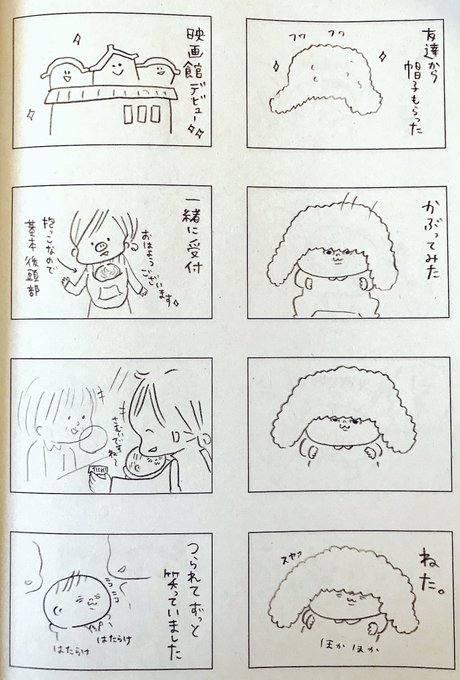 友達から
帽子もらった
フワ
フワ
かぶってみた
ねた。
スヤァ
ほかほか
映画館デビュー
一緒に受付
おはよう
ございます
抱っこなので
基本後頭部
さむいですね〜
つられてずっと
笑っていました
はたらけ
はたらけ